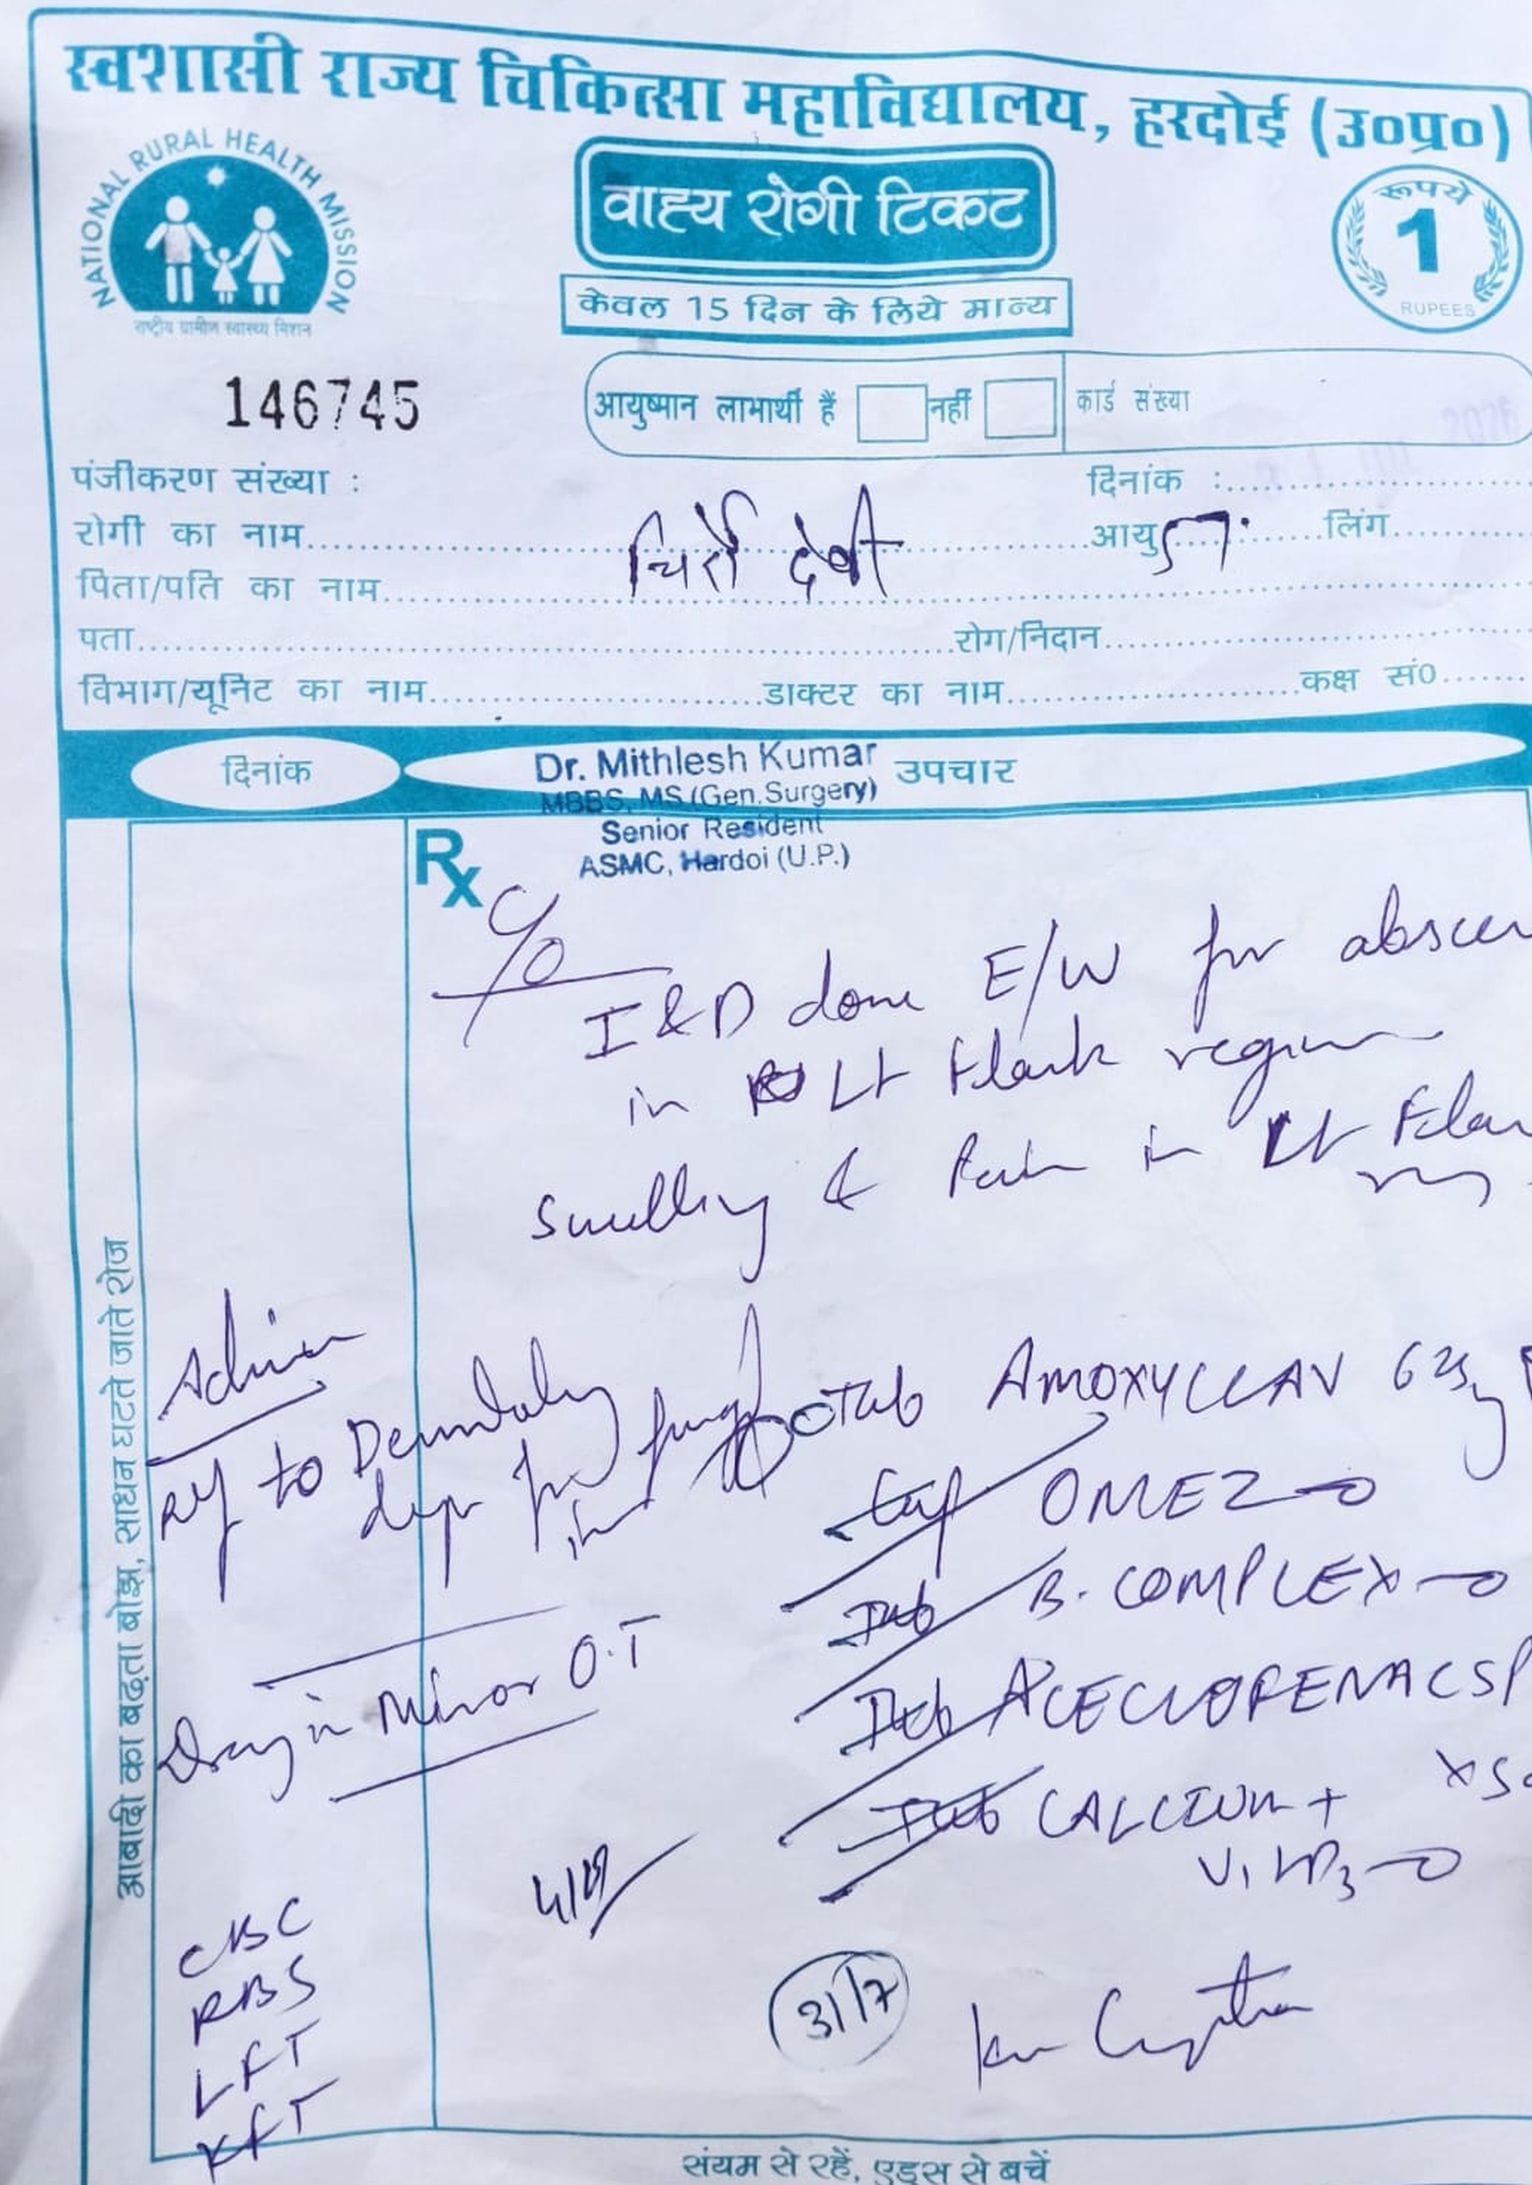 स्वशासी राज्य चिकित्सा महाविद्यालय, हरदोई (उ०प्र०)
NATIONAL RURAL HEALTH MISSION
राष्ट्रीय ग्रामीण स्वास्थ्य मिशन
वाह्य रोगी टिकट
रूपये
1
RUPEES
केवल 15 दिन के लिये मान्य
146745
आयुष्मान लाभार्थी हैं नहीं कार्ड संख्या
पंजीकरण संख्या : दिनांक :
रोगी का नाम देवी आयु लिंग
पिता/पति का नाम
पता रोग/निदान
विभाग/यूनिट का नाम डाक्टर का नाम कक्ष सं0
दिनांक उपचार
Dr. Mithlesh Kumar
MBBS, MS (Gen.Surgery)
Senior Resident
ASMC, Hardoi (U.P.)
Rx
C/o
I&D done E/W for
in Lt Flank region
Swelling & Pain in Lt
Tab AMOXYCLAV 625
Cap OMEZ
Tab B. COMPLEX
Tab ACECLOFENAC SP
Tab CALCIUM +
Vit D3
Ref to
for
in Minor O.T
31/7
CBC
RBS
LFT
KFT
आबादी का बढ़ता बोझ, साधन घटते जाते रोज
संयम से रहें, एड्स से बचें